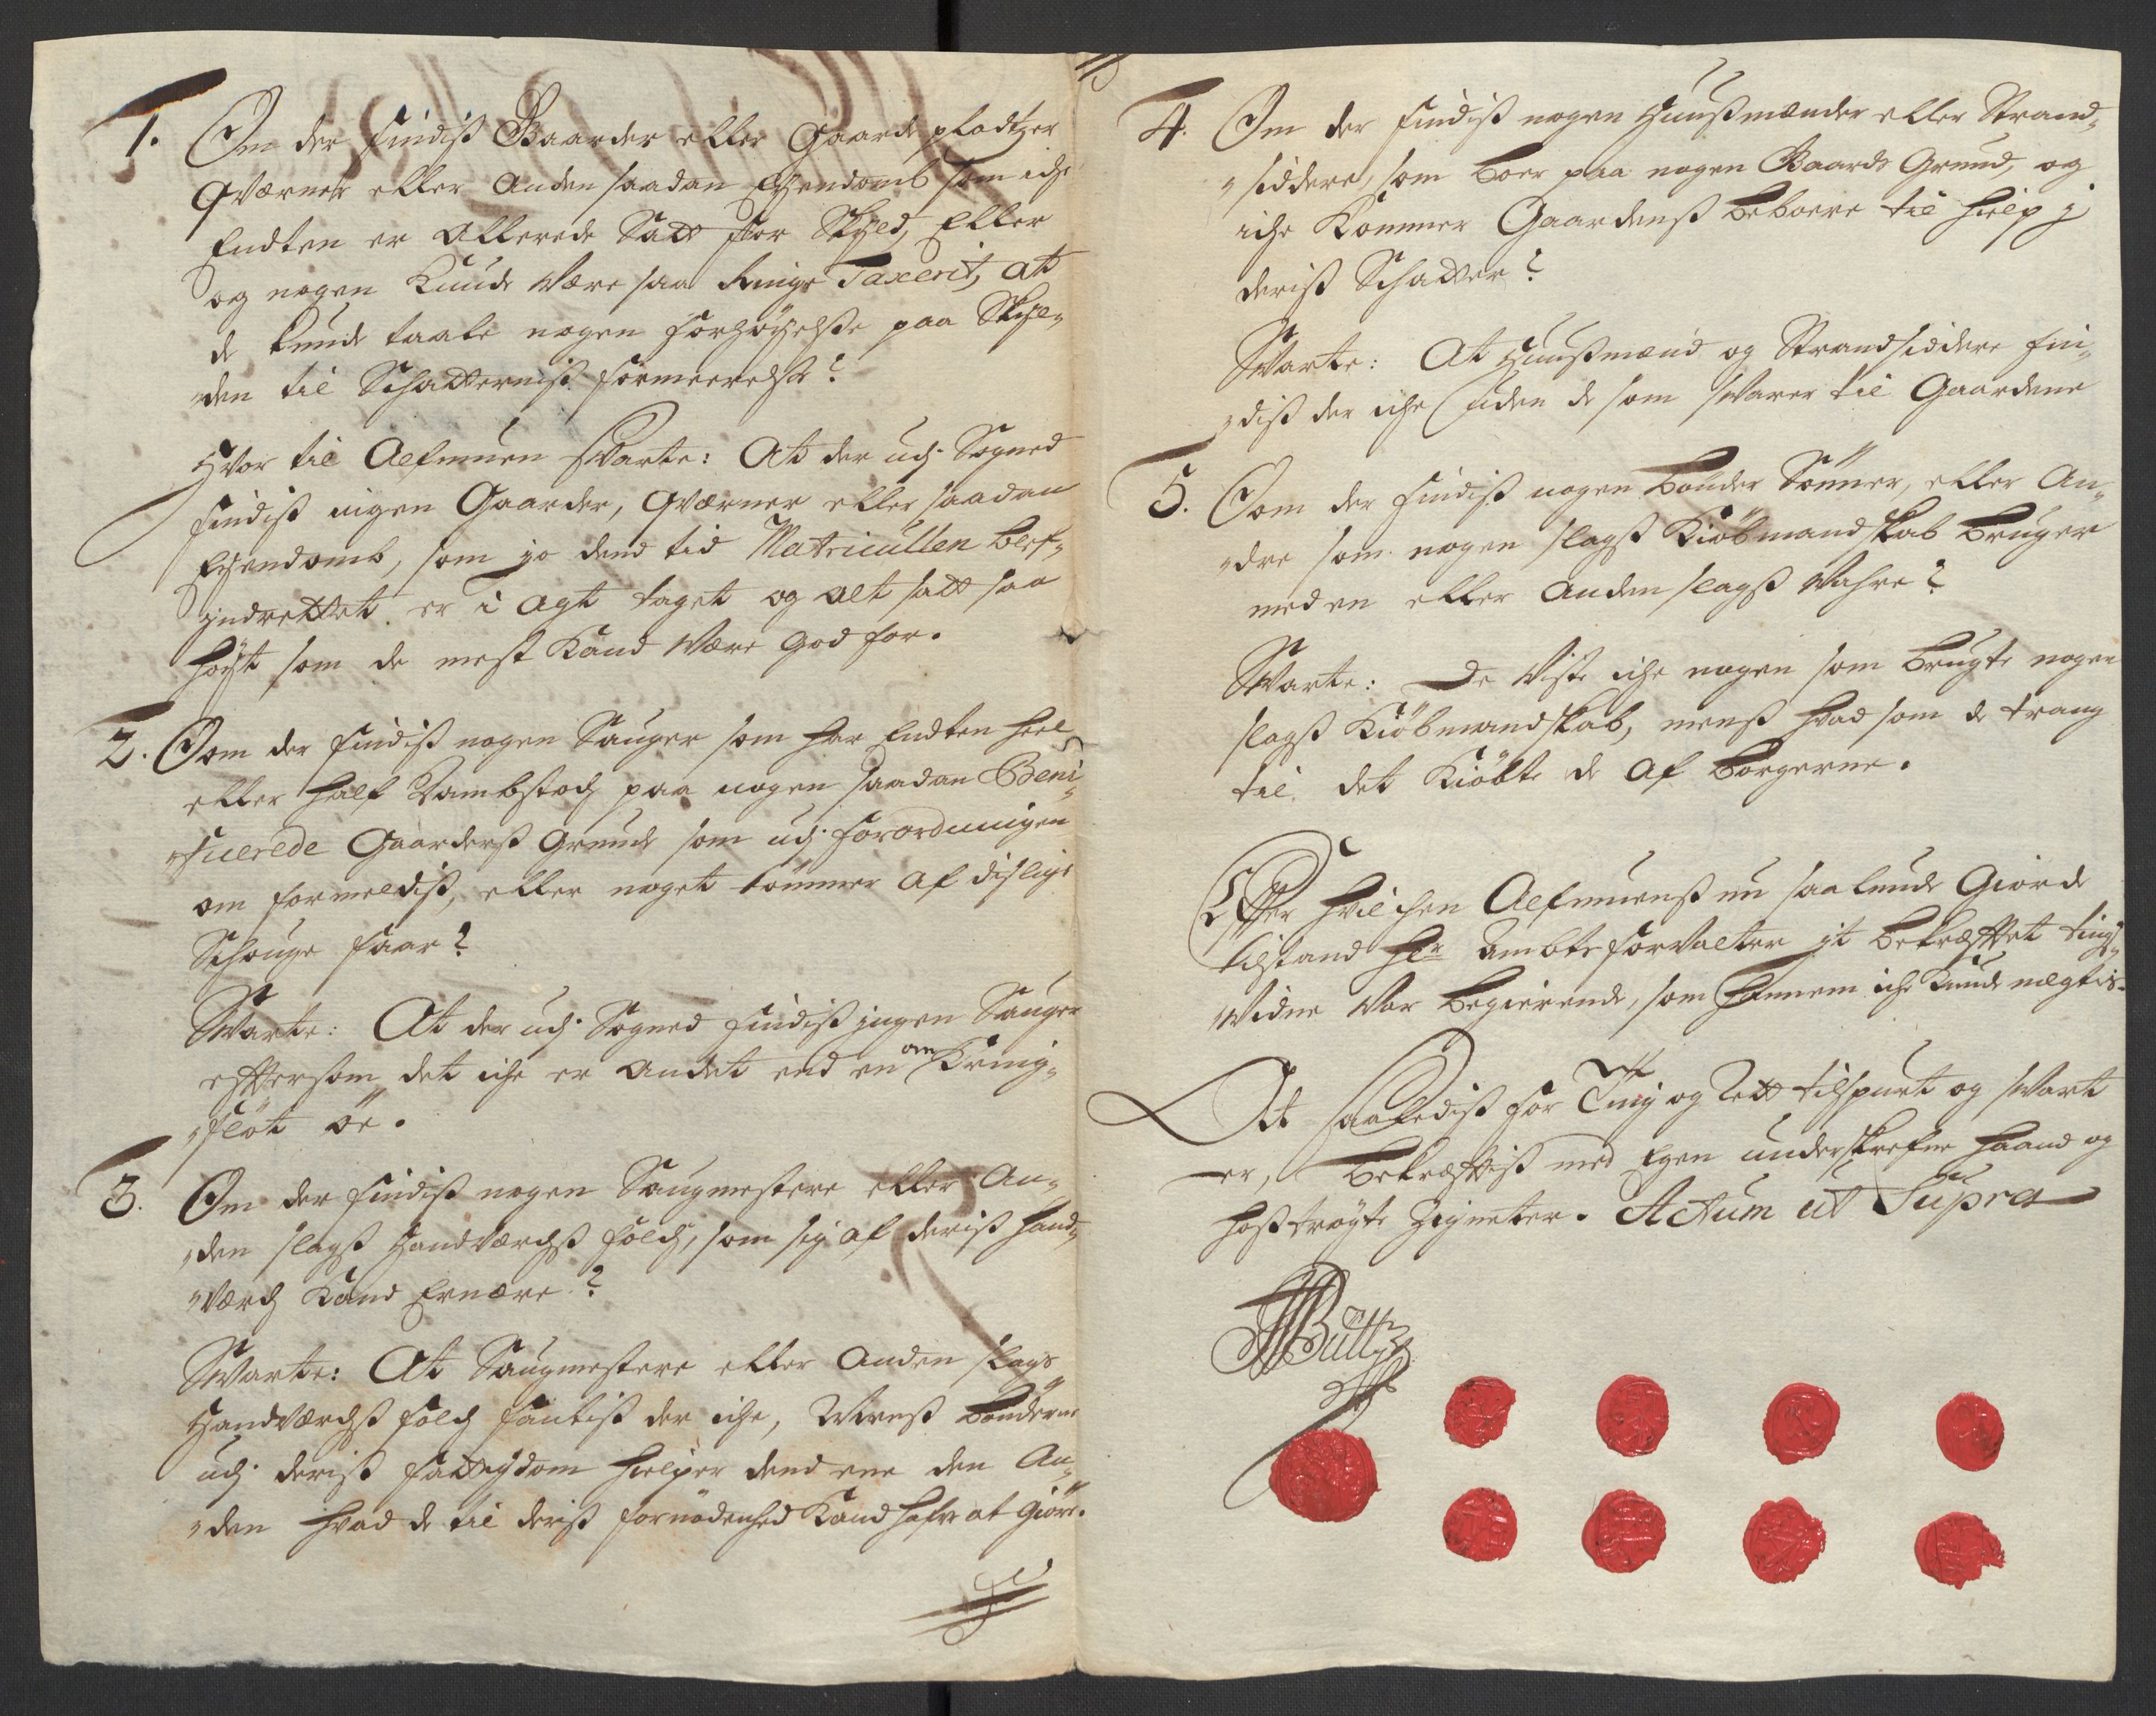 1. Om der findiß Gaarder eller Gaarde pladtzer
Qværner eller anden saadan Eÿendomb som iche
Endten er allerede Satt for Skyld, Eller
og nogen Kunde være saa Ringe Taxerit, at
de kunde taale nogen forhøÿelsse paa Skyl„
„den til Schatterniß formeerelsse?
Hvor til Almuen Svarte: At der udj Sogned
findiß ingen Gaarder, Qværner eller saadan
Eÿendomb, som jo dend tid Matricullen blef„
jndrettet er i agt taget og alt satt saa
høÿt som de mest Kand være god for.
2. Om der findiß nogen Sauger som har Endten heel
eller half Dambstoch paa nogen saadan Beni„
„ficerede Gaarderß Grunde som udj forordningen
om formeldiß, eller noget tømmer af disligе
Schouge faar?
Svarte: At der udj Sogned findiß jngen Sauger
effter som det iche er andet end en om Kring„
„fløt øe.
3. Om der findiß nogen Saugmestere eller An„
„den slags Handværchß folch, som sig af deriß Hand„
„værch Kand Ernære?
Svarte: At Saugmestere eller anden slags
Handværchß folch fantiß der iche, Menß Bønderne
udj deriß fattigdom hielper dend ene den An„
„den hvad de til deriß fornødenhed Kand hafve at giøre.
4. Om der findiß nogen Huußmænder eller Strand„
„siddere, som boer paa nogen Gaards Grund, og
iche Kommer Gaardenß beboere til hielp j
deriß Schatter?
Svarte: At Huußmænd og Strandsiddere fin„
„diß der iche uden de som svarer til Gaardene
5. Om der findiß nogen bønder Sønner, eller An„
„dre som nogen slagß Kiøbmandskab bruger
med en eller anden slagß Vahre?
Svarte: De viste iche nogen som brugte nogen
slagß Kiøbmandskab, menß hvad som de trang
til det Kiøbte de af borgerne.
Effter hvilchen Almuenß nu saalunde Giorde
tilstand Hr Ambtsforvalter it bekræfftet tings„
„vidne var begierende, som hannem iche kunde negtis.
At saalediß for Ting og Rett tilspurt og svart
er, bekræfftiß med Egen underskrefne haand og
hoß trøgte Zigneter. Actum ut Supra